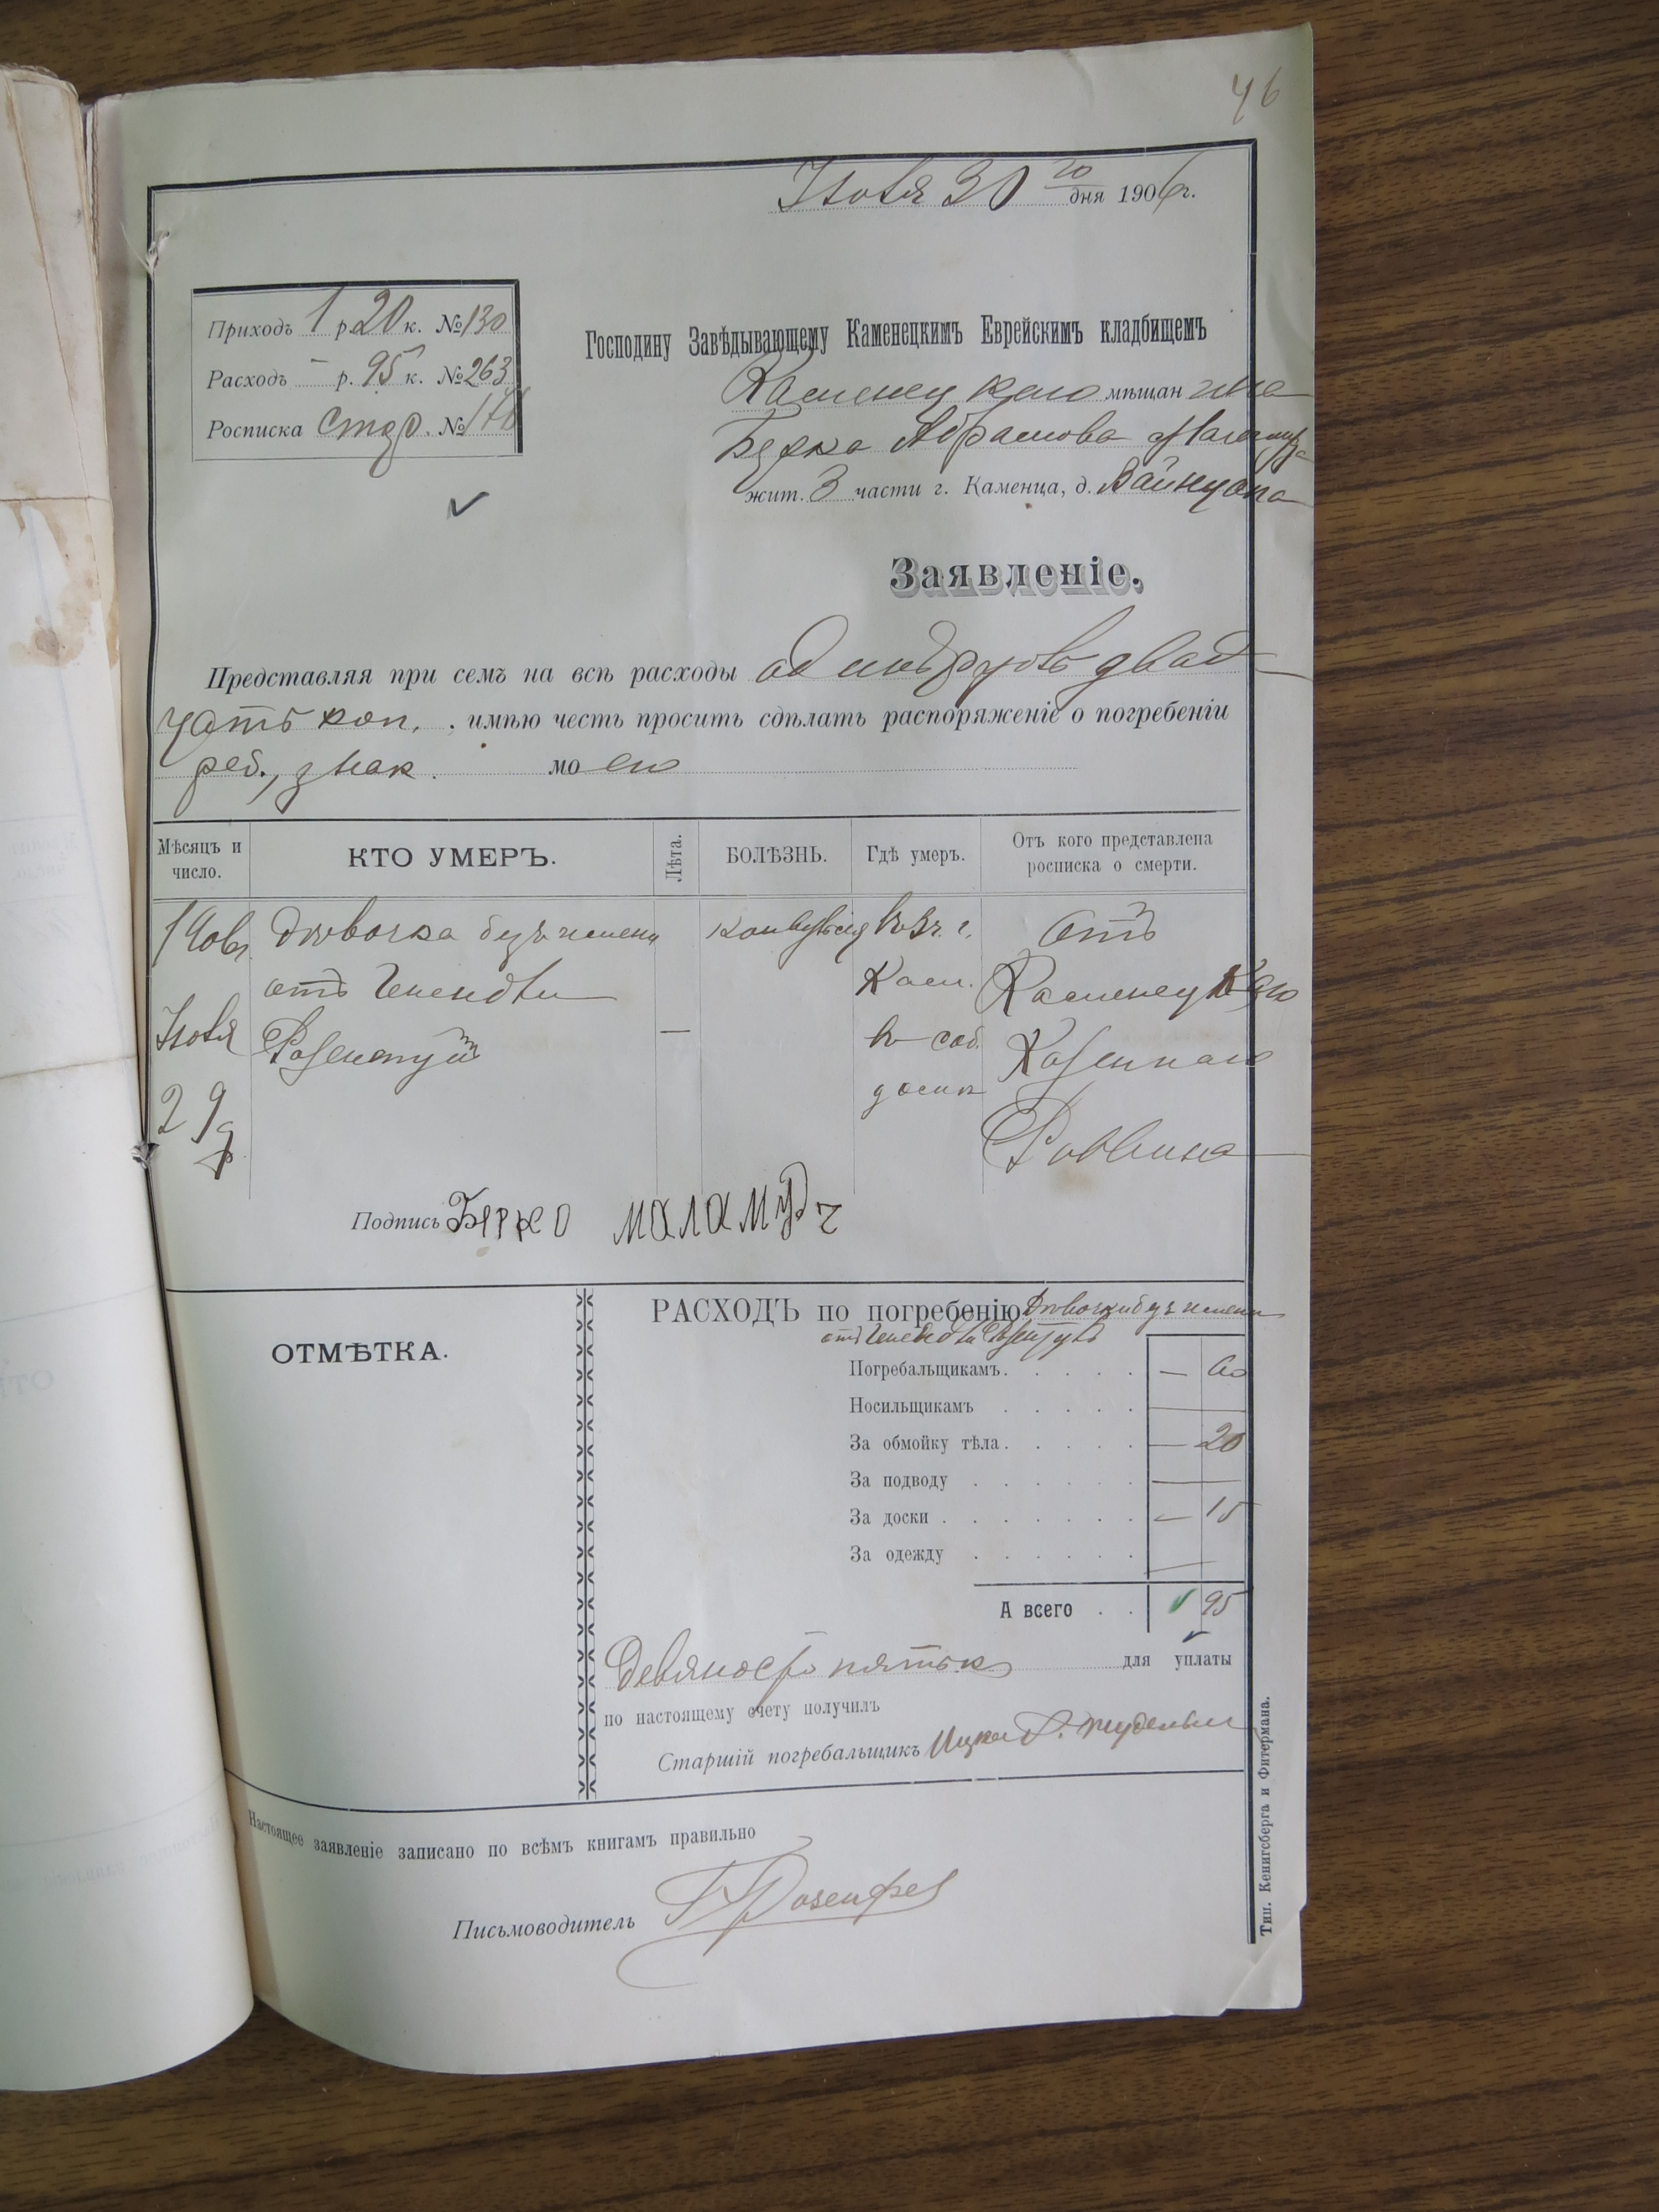 46
Іюля 30 го дня 1906 г.
Приходъ 1 р. 20 к. № 130
Расходъ – р. 95 к. № 263
Росписка стар. №
Господину Завѣдывающему Каменецкимъ Еврейскимъ кладбищемъ
Каменецкаго мѣщанина
Берка Абрамова Маламуда
жит. 3 части г. Каменца, д. Вайнцапа
Заявленіе.
Представляя при семъ на всѣ расходы одинъ рубль двад
цать коп. , имѣю честь просить сдѣлать распоряженіе о погребеніи
реб., знак. моего
Мѣсяцъ и число.
КТО УМЕРЪ.
Лѣта.
БОЛѢЗНЬ.
Гдѣ умеръ.
Отъ кого представлена росписка о смерти.
Іюля
29
Дѣвочка безъ имени
отъ Генендли
—
въ 3 ч. г.
Кам.
въ соб.
домѣ
Отъ
Каменецкаго
Казеннаго
Раввина
Подпись Берко маламудъ
ОТМѢТКА.
РАСХОДЪ по погребенію Дѣвочки безъ имени
отъ Генендли
Погребальщикамъ. — 60
Носильщикамъ
За обмойку тѣла. — 20
За подводу —
За доски — 15
За одежду —
А всего 95
Девяносто пять к для уплаты
по настоящему счету получилъ
Старшій погребальщикъ
Настоящее заявленіе записано по всѣмъ книгамъ правильно
Письмоводитель Розенфел
Тип. Кенигсберга и Фитермана.